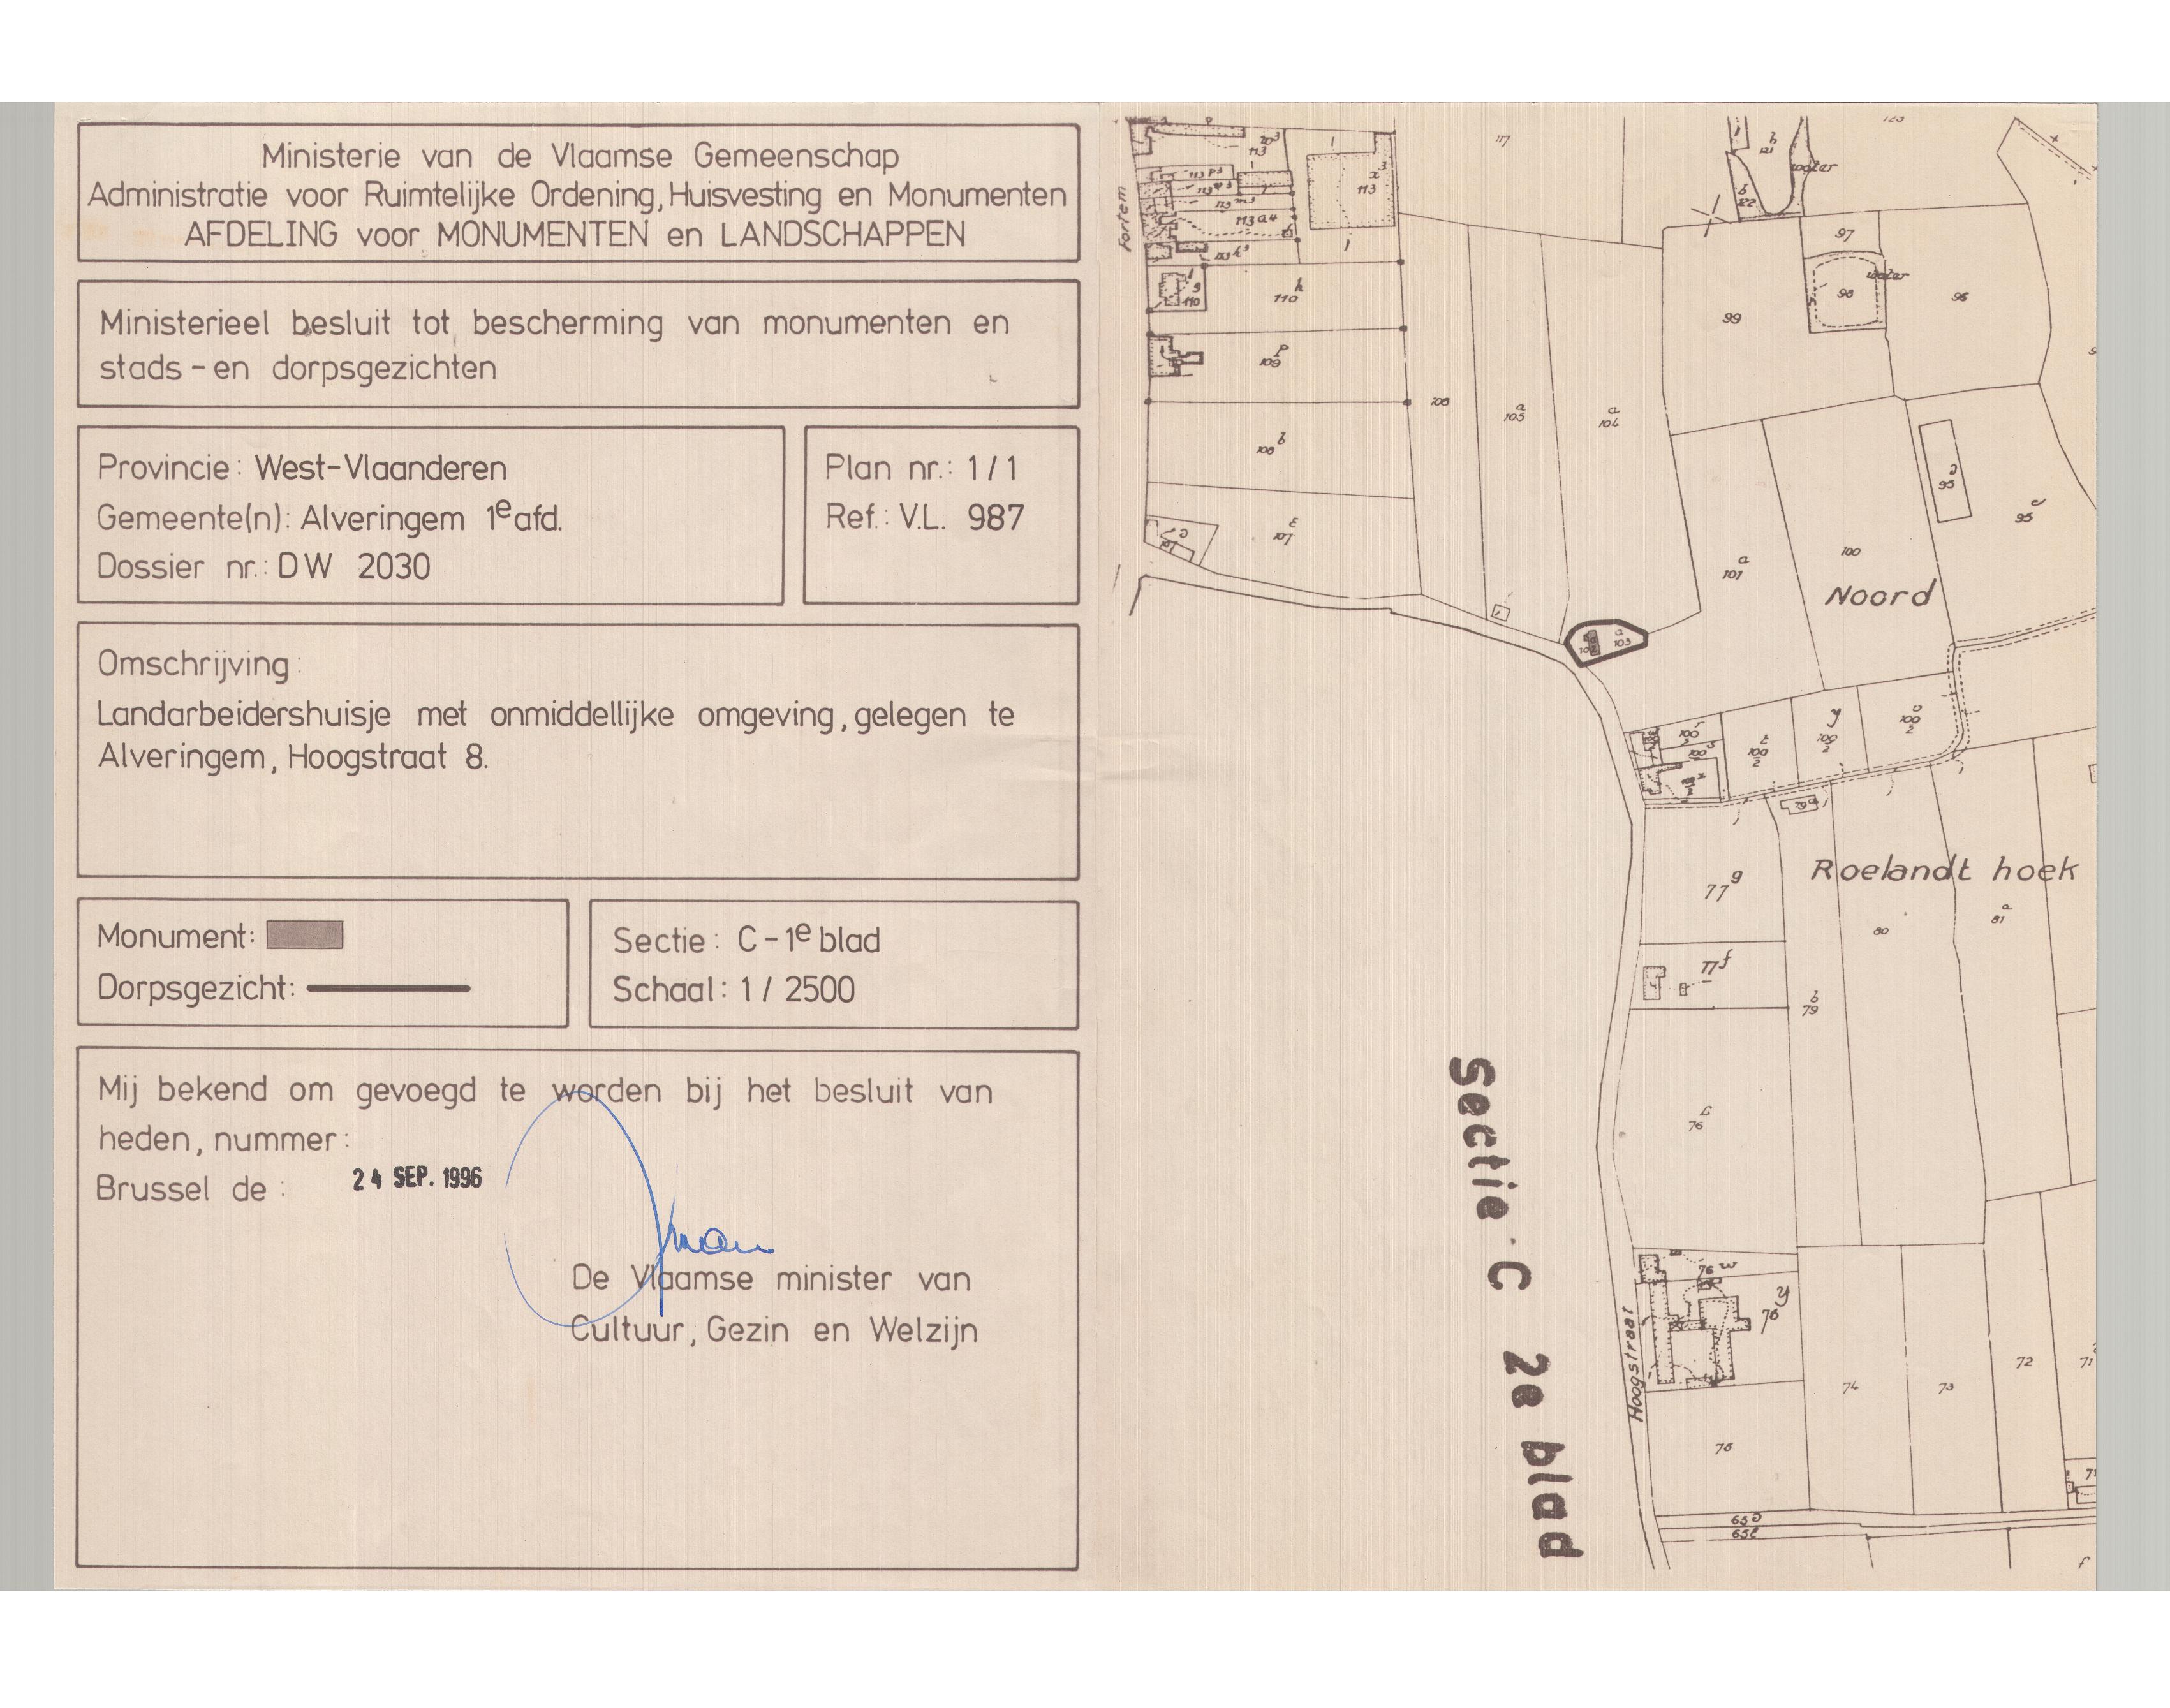 Ministerie van de Vlaamse Gemeenschap
Administratie voor Ruimtelijke Ordening, Huisvesting en Monumenten
AFDELING voor MONUMENTEN en LANDSCHAPPEN
Ministerieel besluit tot bescherming van monumenten en
stads-en dorpsgezichten
Provincie: West-Vlaanderen
Gemeente(n): Alveringem 1e afd.
Dossier nr.: DW 2030
Plan nr.: 1/1
Ref.: V.L. 987
Omschrijving:
Landarbeidershuisje met onmiddellijke omgeving, gelegen te
Alveringem, Hoogstraat 8.
Monument:
Dorpsgezicht:
Sectie: C-1e blad
Schaal: 1/2500
Mij bekend om gevoegd te worden bij het besluit van
heden, nummer:
Brussel de: 24 SEP. 1996
De Vlaamse minister van
Cultuur, Gezin en Welzijn
Fortem
117
water
113
113 a4
113
97
water
98
96
99
110 h
110 g
109 P
108 b
105 a
104 a
107
95
95
101 a
100
Noord
103 a
77 g
Roelandt hoek
81 a
80
77 f
79 b
76
Sectie C 2e blad
76 w
76 y
Hoogstraat
74
73
72
71